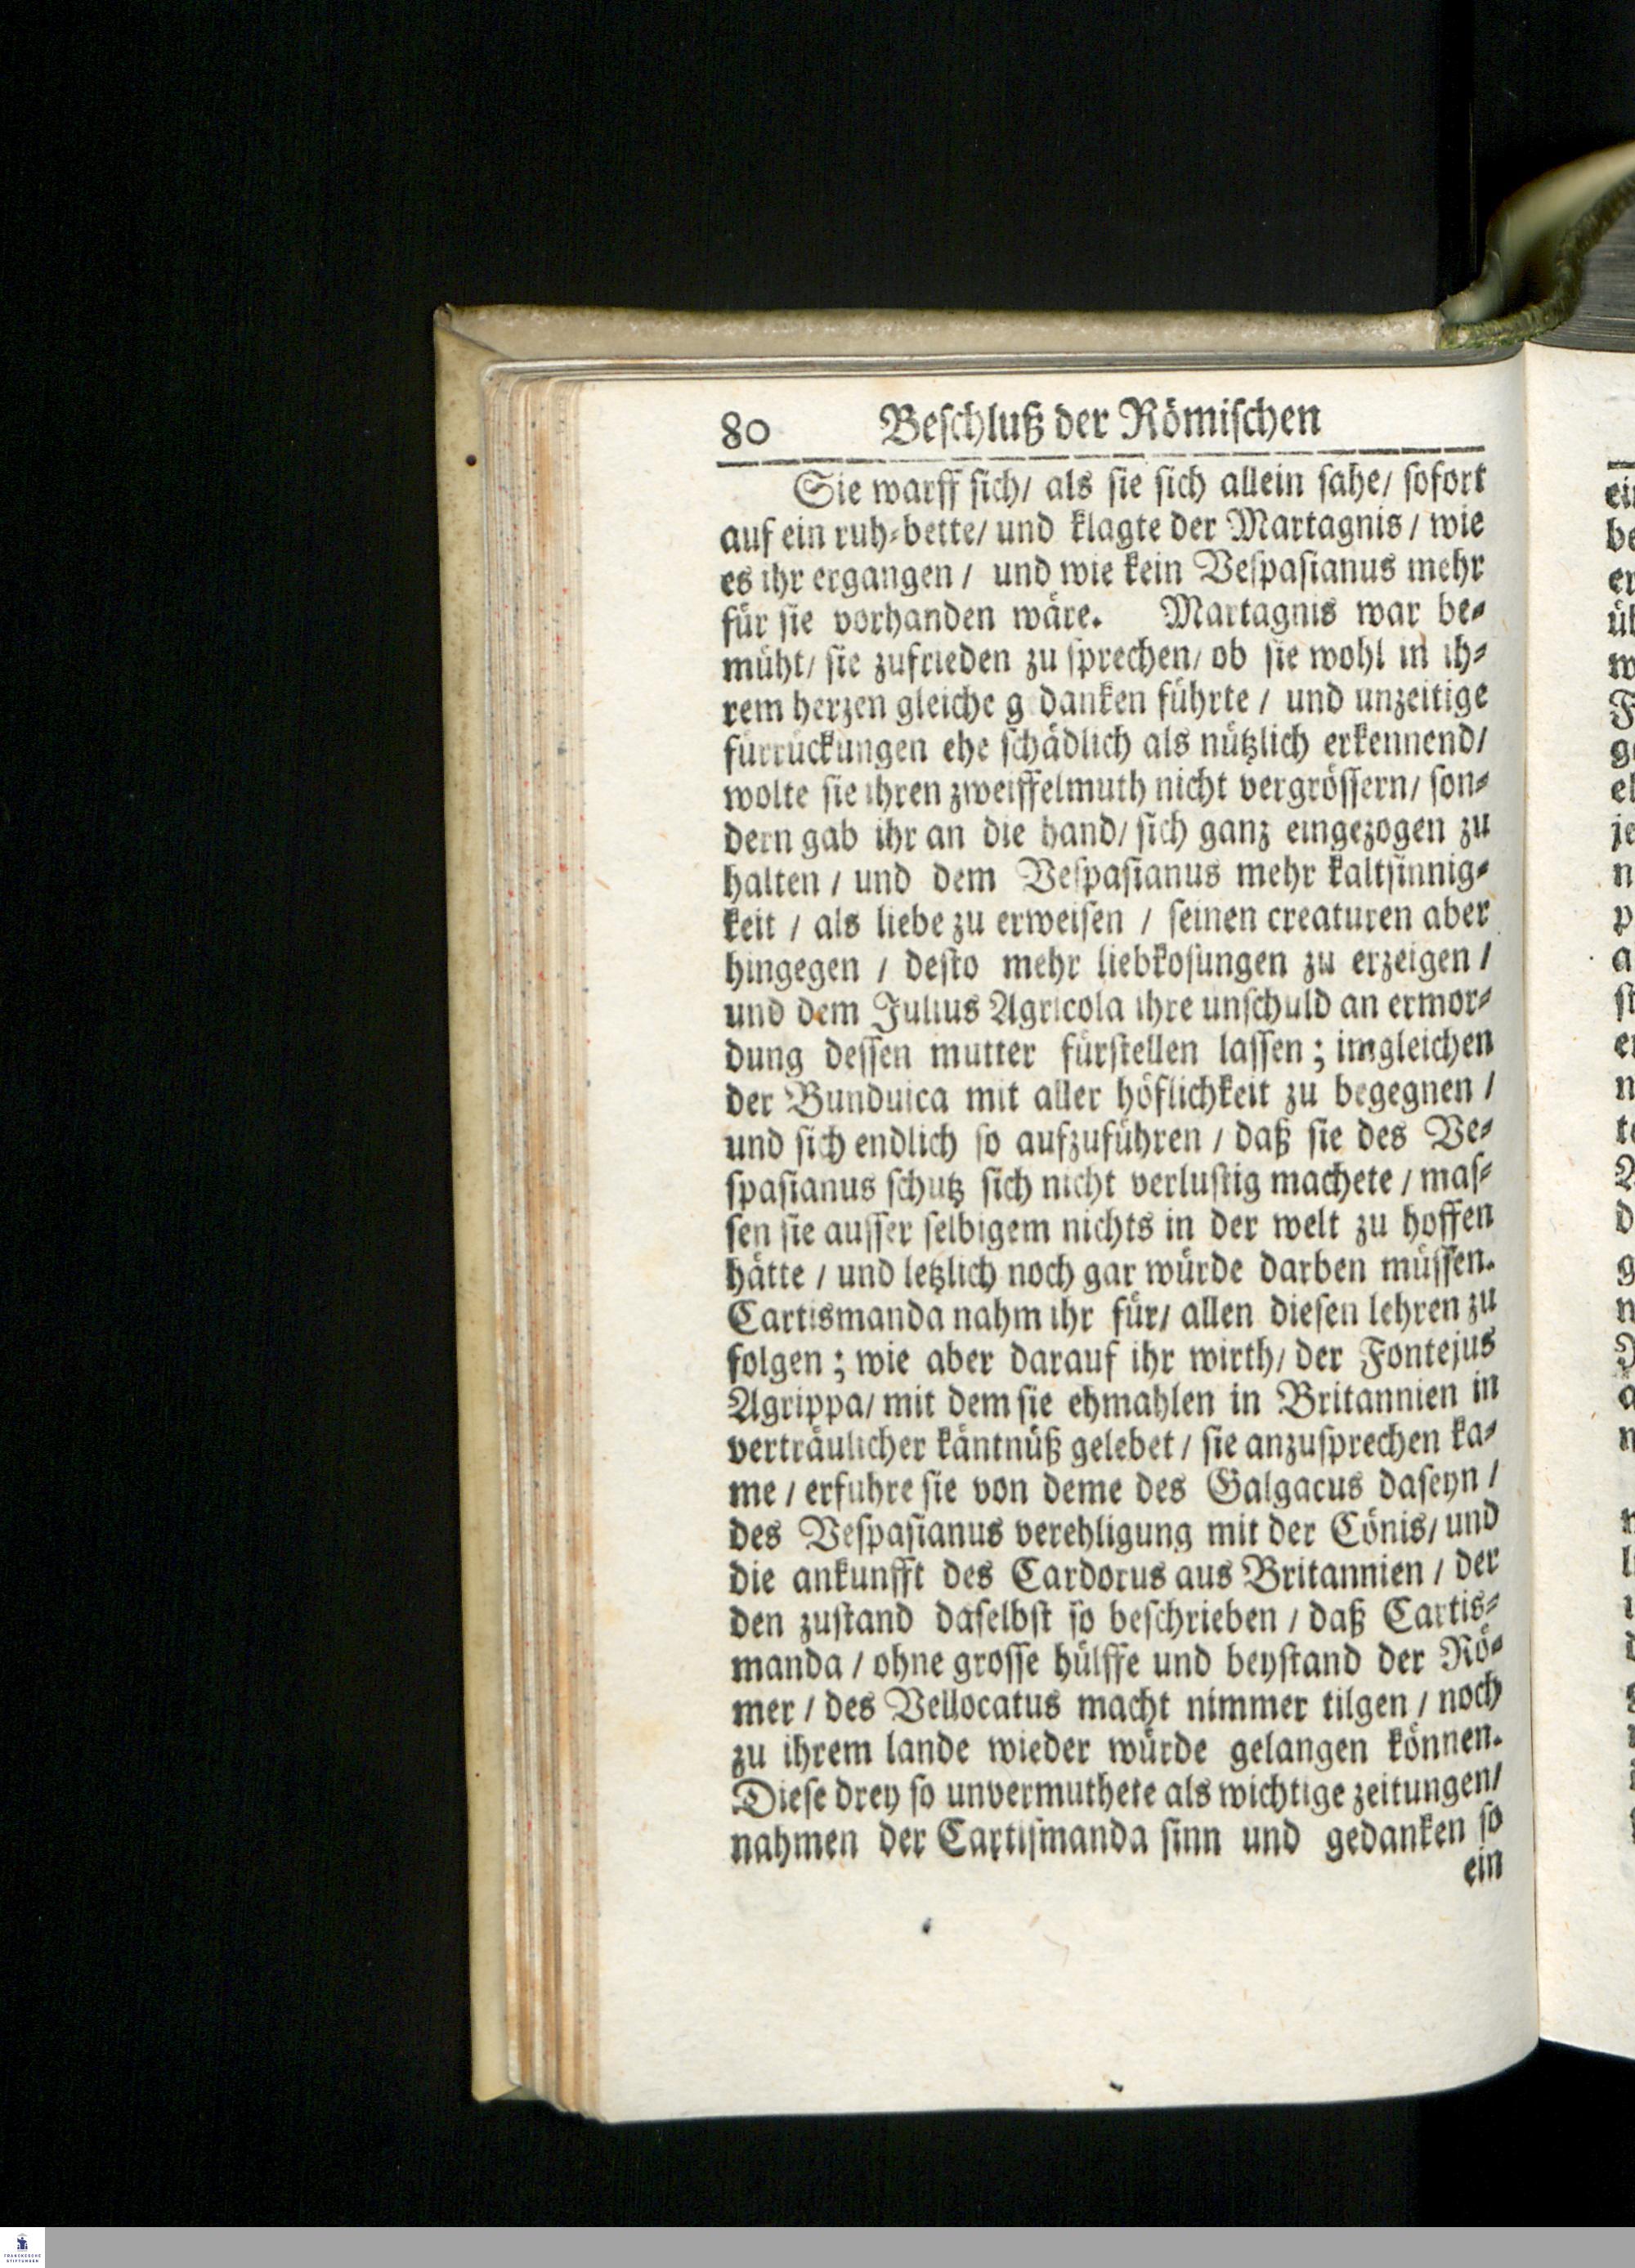 80 Beſchluß der Römiſchen
Sie warff ſich/ als ſie ſich allein ſahe/ ſofort
auf ein ruh-bette/ und klagte der Martagnis / wie
es ihr ergangen / und wie kein Veſpaſianus mehr
für ſie vorhanden wäre. Martagnis war be-
müht/ ſie zufrieden zu ſprechen/ ob ſie wohl in ih-
rem herzen gleiche g danken führte / und unzeitige
fürrückungen ehe ſchädlich als nützlich erkennend/
wolte ſie ihren zweiffelmuth nicht vergröſſern/ ſon-
dern gab ihr an die hand/ ſich ganz eingezogen zu
halten / und dem Veſpaſianus mehr kaltſinnig-
keit / als liebe zu erweiſen / ſeinen creaturen aber
hingegen / deſto mehr liebkoſungen zu erzeigen /
und dem Julius Agricola ihre unſchuld an ermor-
dung deſſen mutter fürſtellen laſſen; imgleichen
der Bunduica mit aller höflichkeit zu begegnen /
und ſich endlich ſo aufzuführen / daß ſie des Ve-
ſpaſianus ſchutz ſich nicht verluſtig machete / maſ-
ſen ſie auſſer ſelbigem nichts in der welt zu hoffen
hätte / und letzlich noch gar würde darben müſſen.
Cartismanda nahm ihr für/ allen dieſen lehren zu
folgen; wie aber darauf ihr wirth/ der Fontejus
Agrippa/ mit dem ſie ehmahlen in Britannien in
verträulicher käntnüß gelebet / ſie anzuſprechen ka-
me / erfuhre ſie von deme des Galgacus daſeyn /
des Veſpaſianus verehligung mit der Cönis/ und
die ankunfft des Cardorus aus Britannien / der
den zuſtand daſelbſt ſo beſchrieben / daß Cartis-
manda / ohne groſſe hülffe und beyſtand der Rö-
mer / des Vellocatus macht nimmer tilgen / noch
zu ihrem lande wieder würde gelangen können.
Dieſe drey ſo unvermuthete als wichtige zeitungen/
nahmen der Cartiſmanda ſinn und gedanken ſo
ein